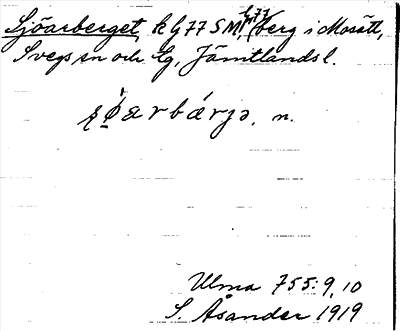 Sjöarberget, k G 77 SM, berg i Mosätt,
Svegs sn och tg, Jämtlands l.
ʂǿarbárjə, n.
Ulma 755: 9, 10
S. Åsander 1919